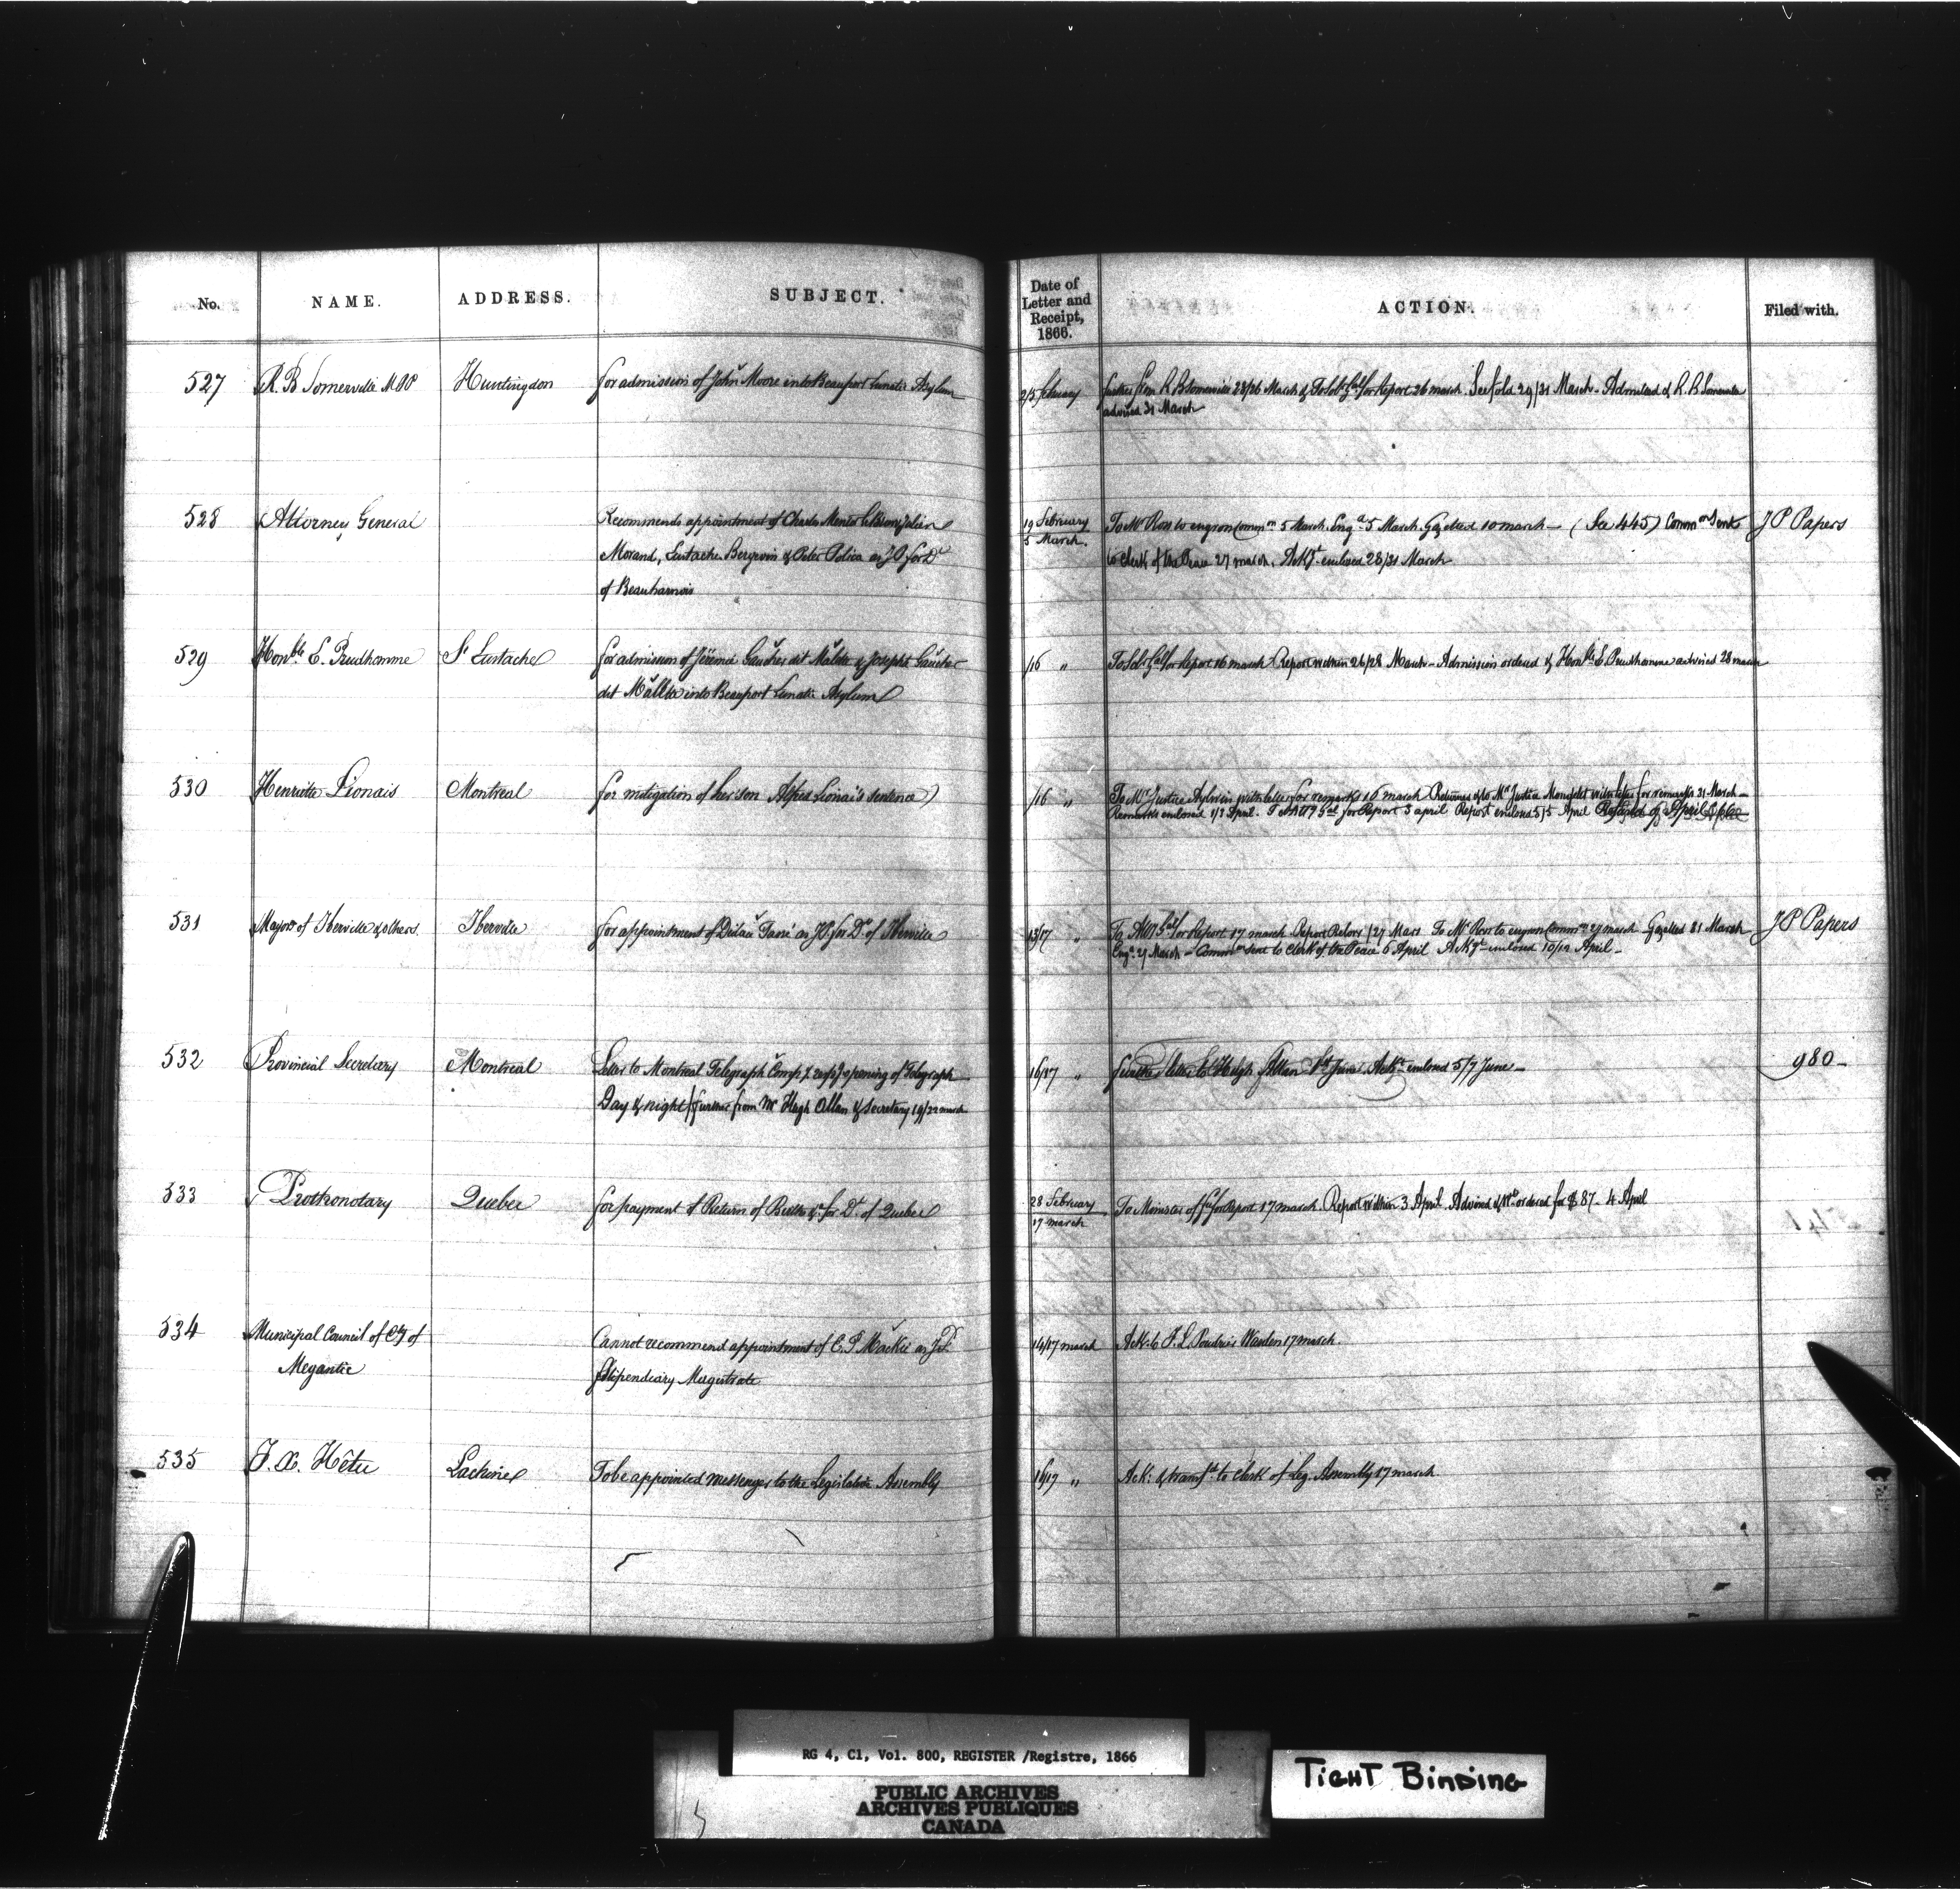 No. NAME. ADDRESS. SUBJECT. Date of Letter and Receipt, 1866. ACTION. Filed with.
527 R. B Somerville MPP Huntingdon for admission of John Moore into Beauport Lunatic Asylum 2/5 february further from R B Somerville 23/26 March & To Sol Gal for Report 26 march. See fold 29/31 March - Admitted & R. B Somerville
advised 31 March
528 Attorney General Recommends appointment of Charles 19 February To Mr Ross to engross Commn 5 March. Engd 5 March. Gazetted 10 march - (See 445) Common Sent J P Papers
Morand, Eustache Bergevin & Peter as JP for Dt 5 March. to Clerk of the Peace 27 march. Ackgt enclosed 28/31 March
of Beauharnois
529 Honble E. Prudhomme St Eustache for admission of Jérémie Gauthier dit & Joseph Gauthier /16 " To Sol. Gal for Report 16 march Report within 26/28 March - Admission ordered & Honble E Prudhomme advised 28 march
dit into Beauport Lunatic Asylum
530 Henriette Lionais Montreal for mitigation of her son Alfred Lionais sentence /16 " To Mr Justice Aylwin with letter for remarks 16 march Returned & to Mr Justice Mondelet with letter for remarks 31 March -
Remarks enclosed 1/3 April. To Att Gal for Report 3 april Report enclosed 5/5 April
531 Mayor of Iberville & others Iberville for appointment of as JP for Dt of Iberville 13/17 " To Att Gal for Report 17 march Report /27 Mars To Mr Ross to engross Commn 27 march Gazetted 31 March J P Papers
Engd 27 March - Commn sent to Clerk of the Peace 6 April Ackgt enclosed 10/12 April -
532 Provincial Secretary Montreal Letter to Montreal Telegraph Compy resp opening of Telegraph 16/17 " further letter to Hugh Allan 1st June Ackt enclosed 5/7 June - 980 -
Day & night / further from Mr Hugh Allan & Secretary 19/22 march
533 Prothonotary Quebec for payment of Return of Births &c for Dt of Quebec 28 February To Minister of for Report 17 march. Report within 3 April. Advised & Wt ordered for $87 - 4 April
17 march
534 Municipal Council of Cty of Cannot recommend appointment of C. J Mackie as JP. 14/17 march Ack: to F. L. Poudrier Warden 17 march
Megantic Stipendiary Magistrate
535 F. X. Hêtu Lachine To be appointed messenger to the Legislative Assembly 16/17 " Ack: & transfd to Clerk of Leg. Assembly 17 march
RG 4, C1, Vol. 800, REGISTER /Registre, 1866
PUBLIC ARCHIVES
ARCHIVES PUBLIQUES
CANADA
TIGHT BINDING